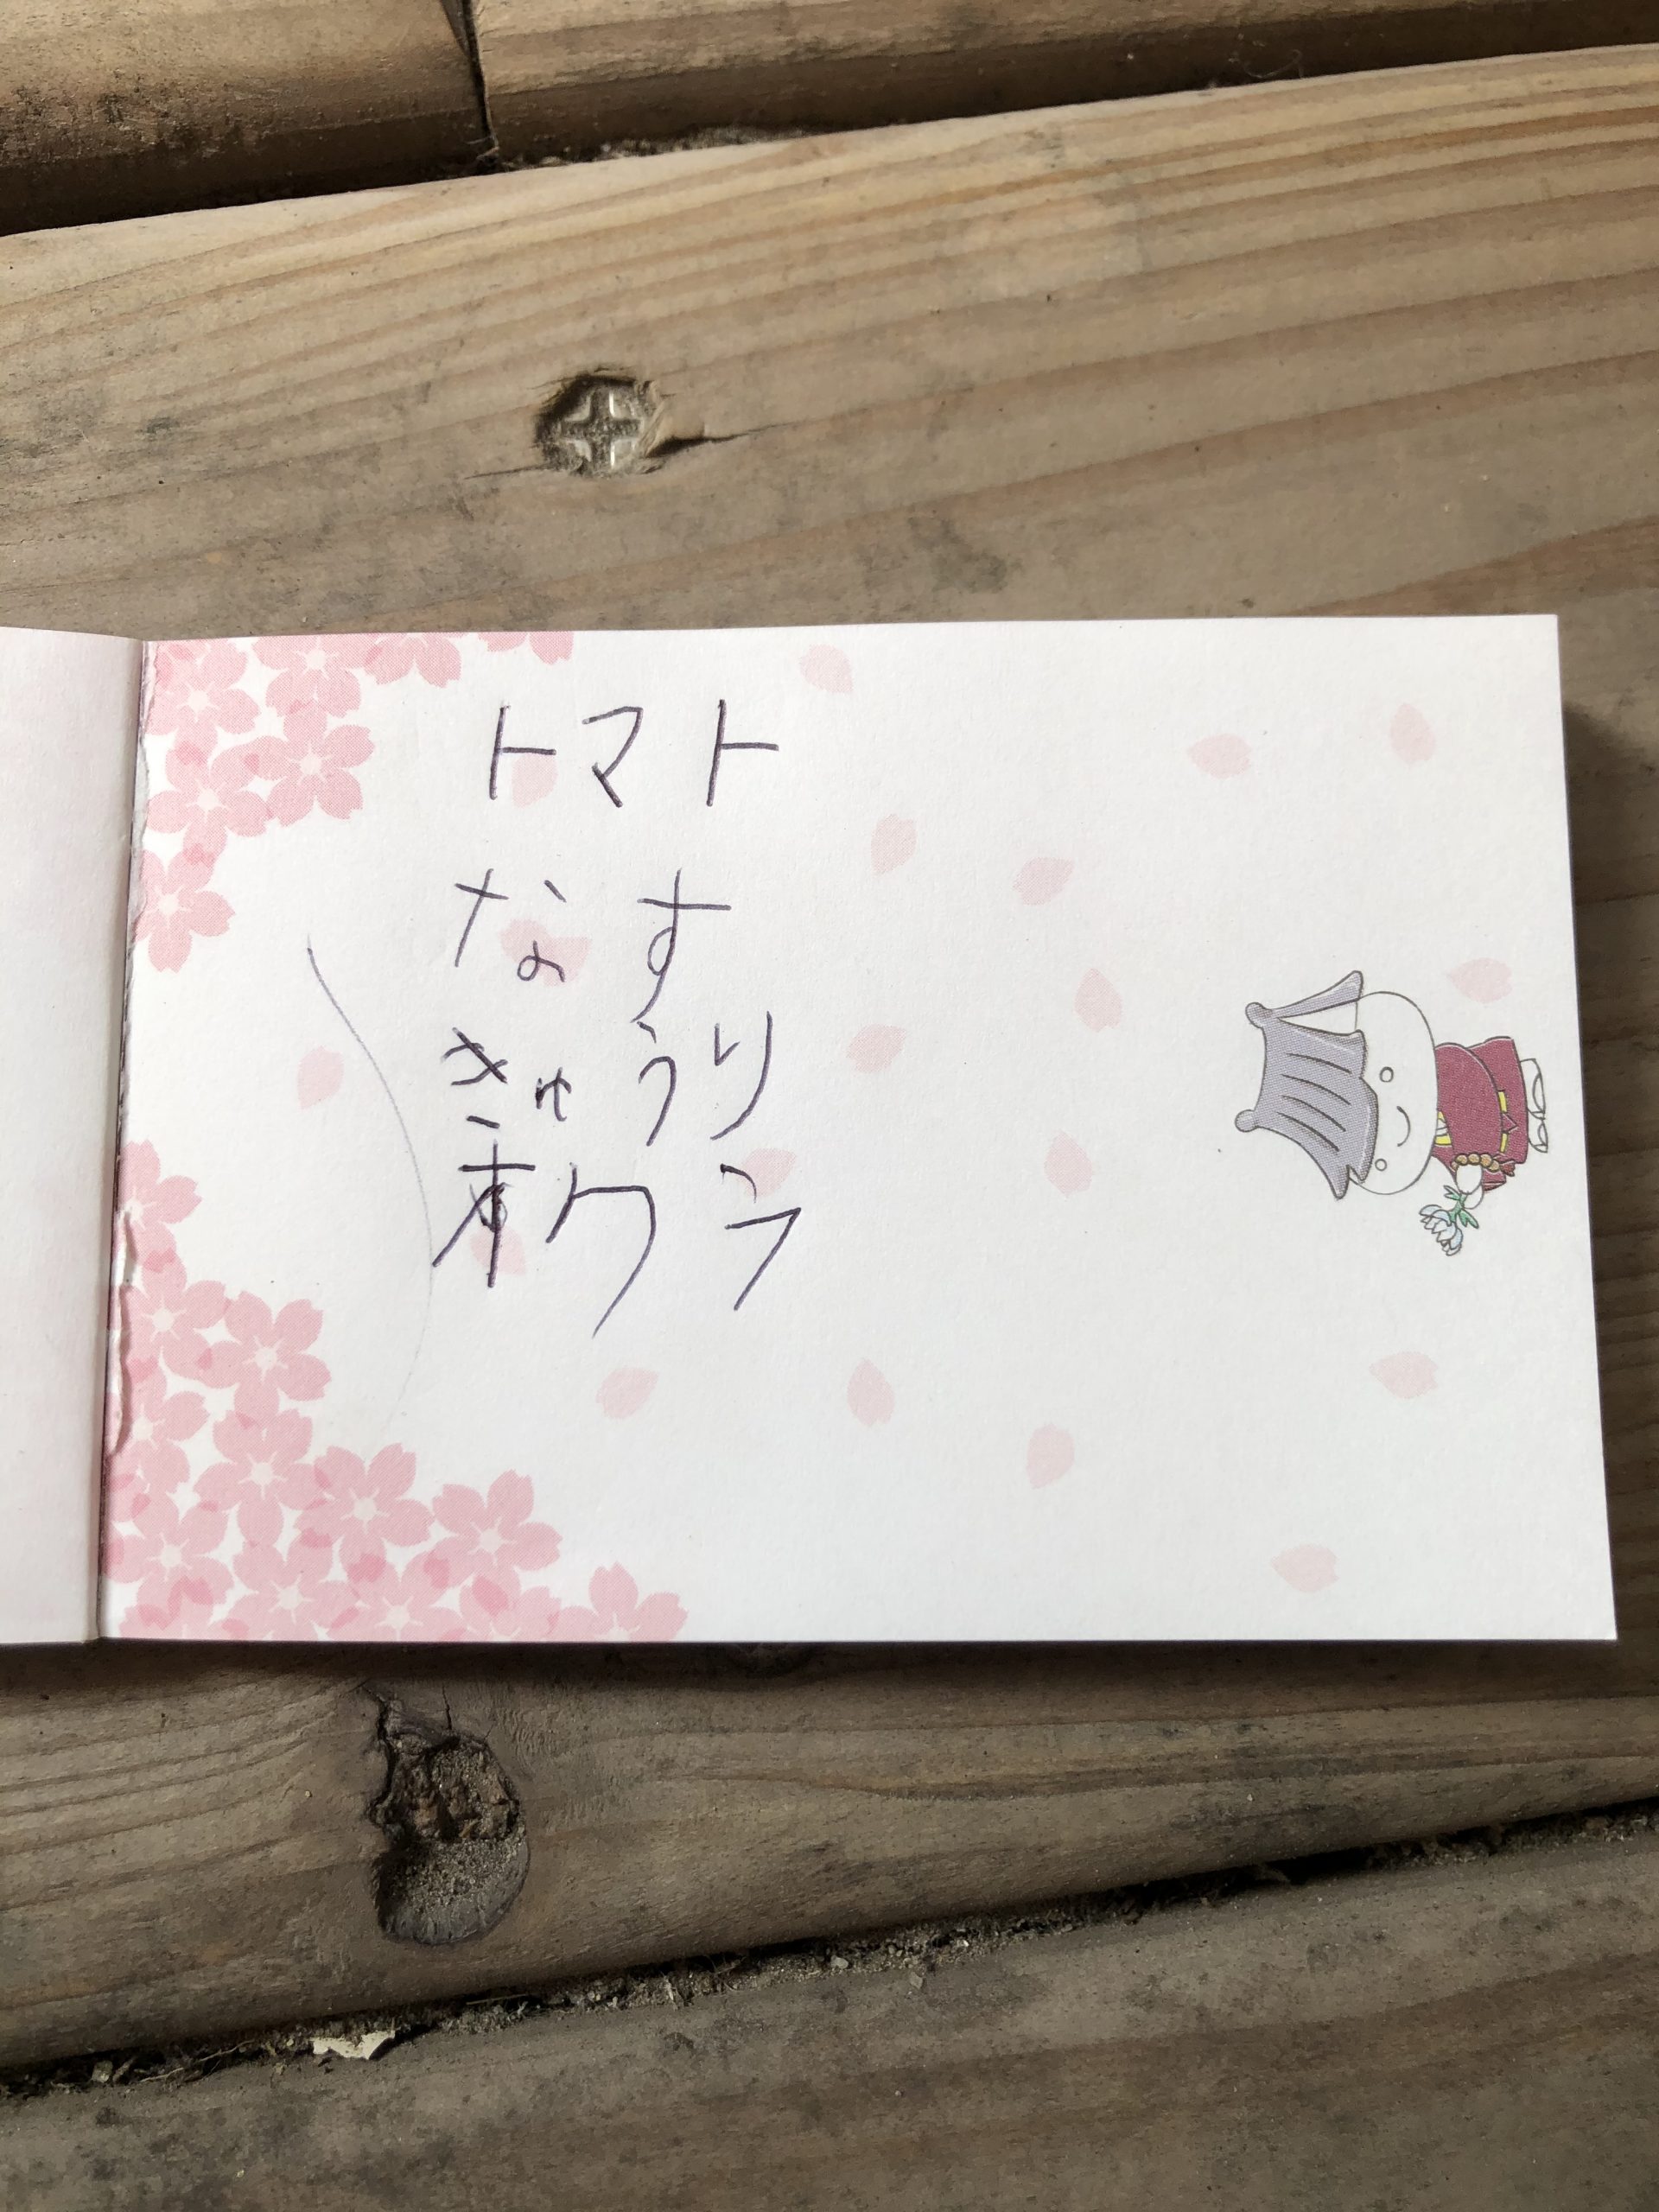 トマト
なす
きゅうり
オクラ